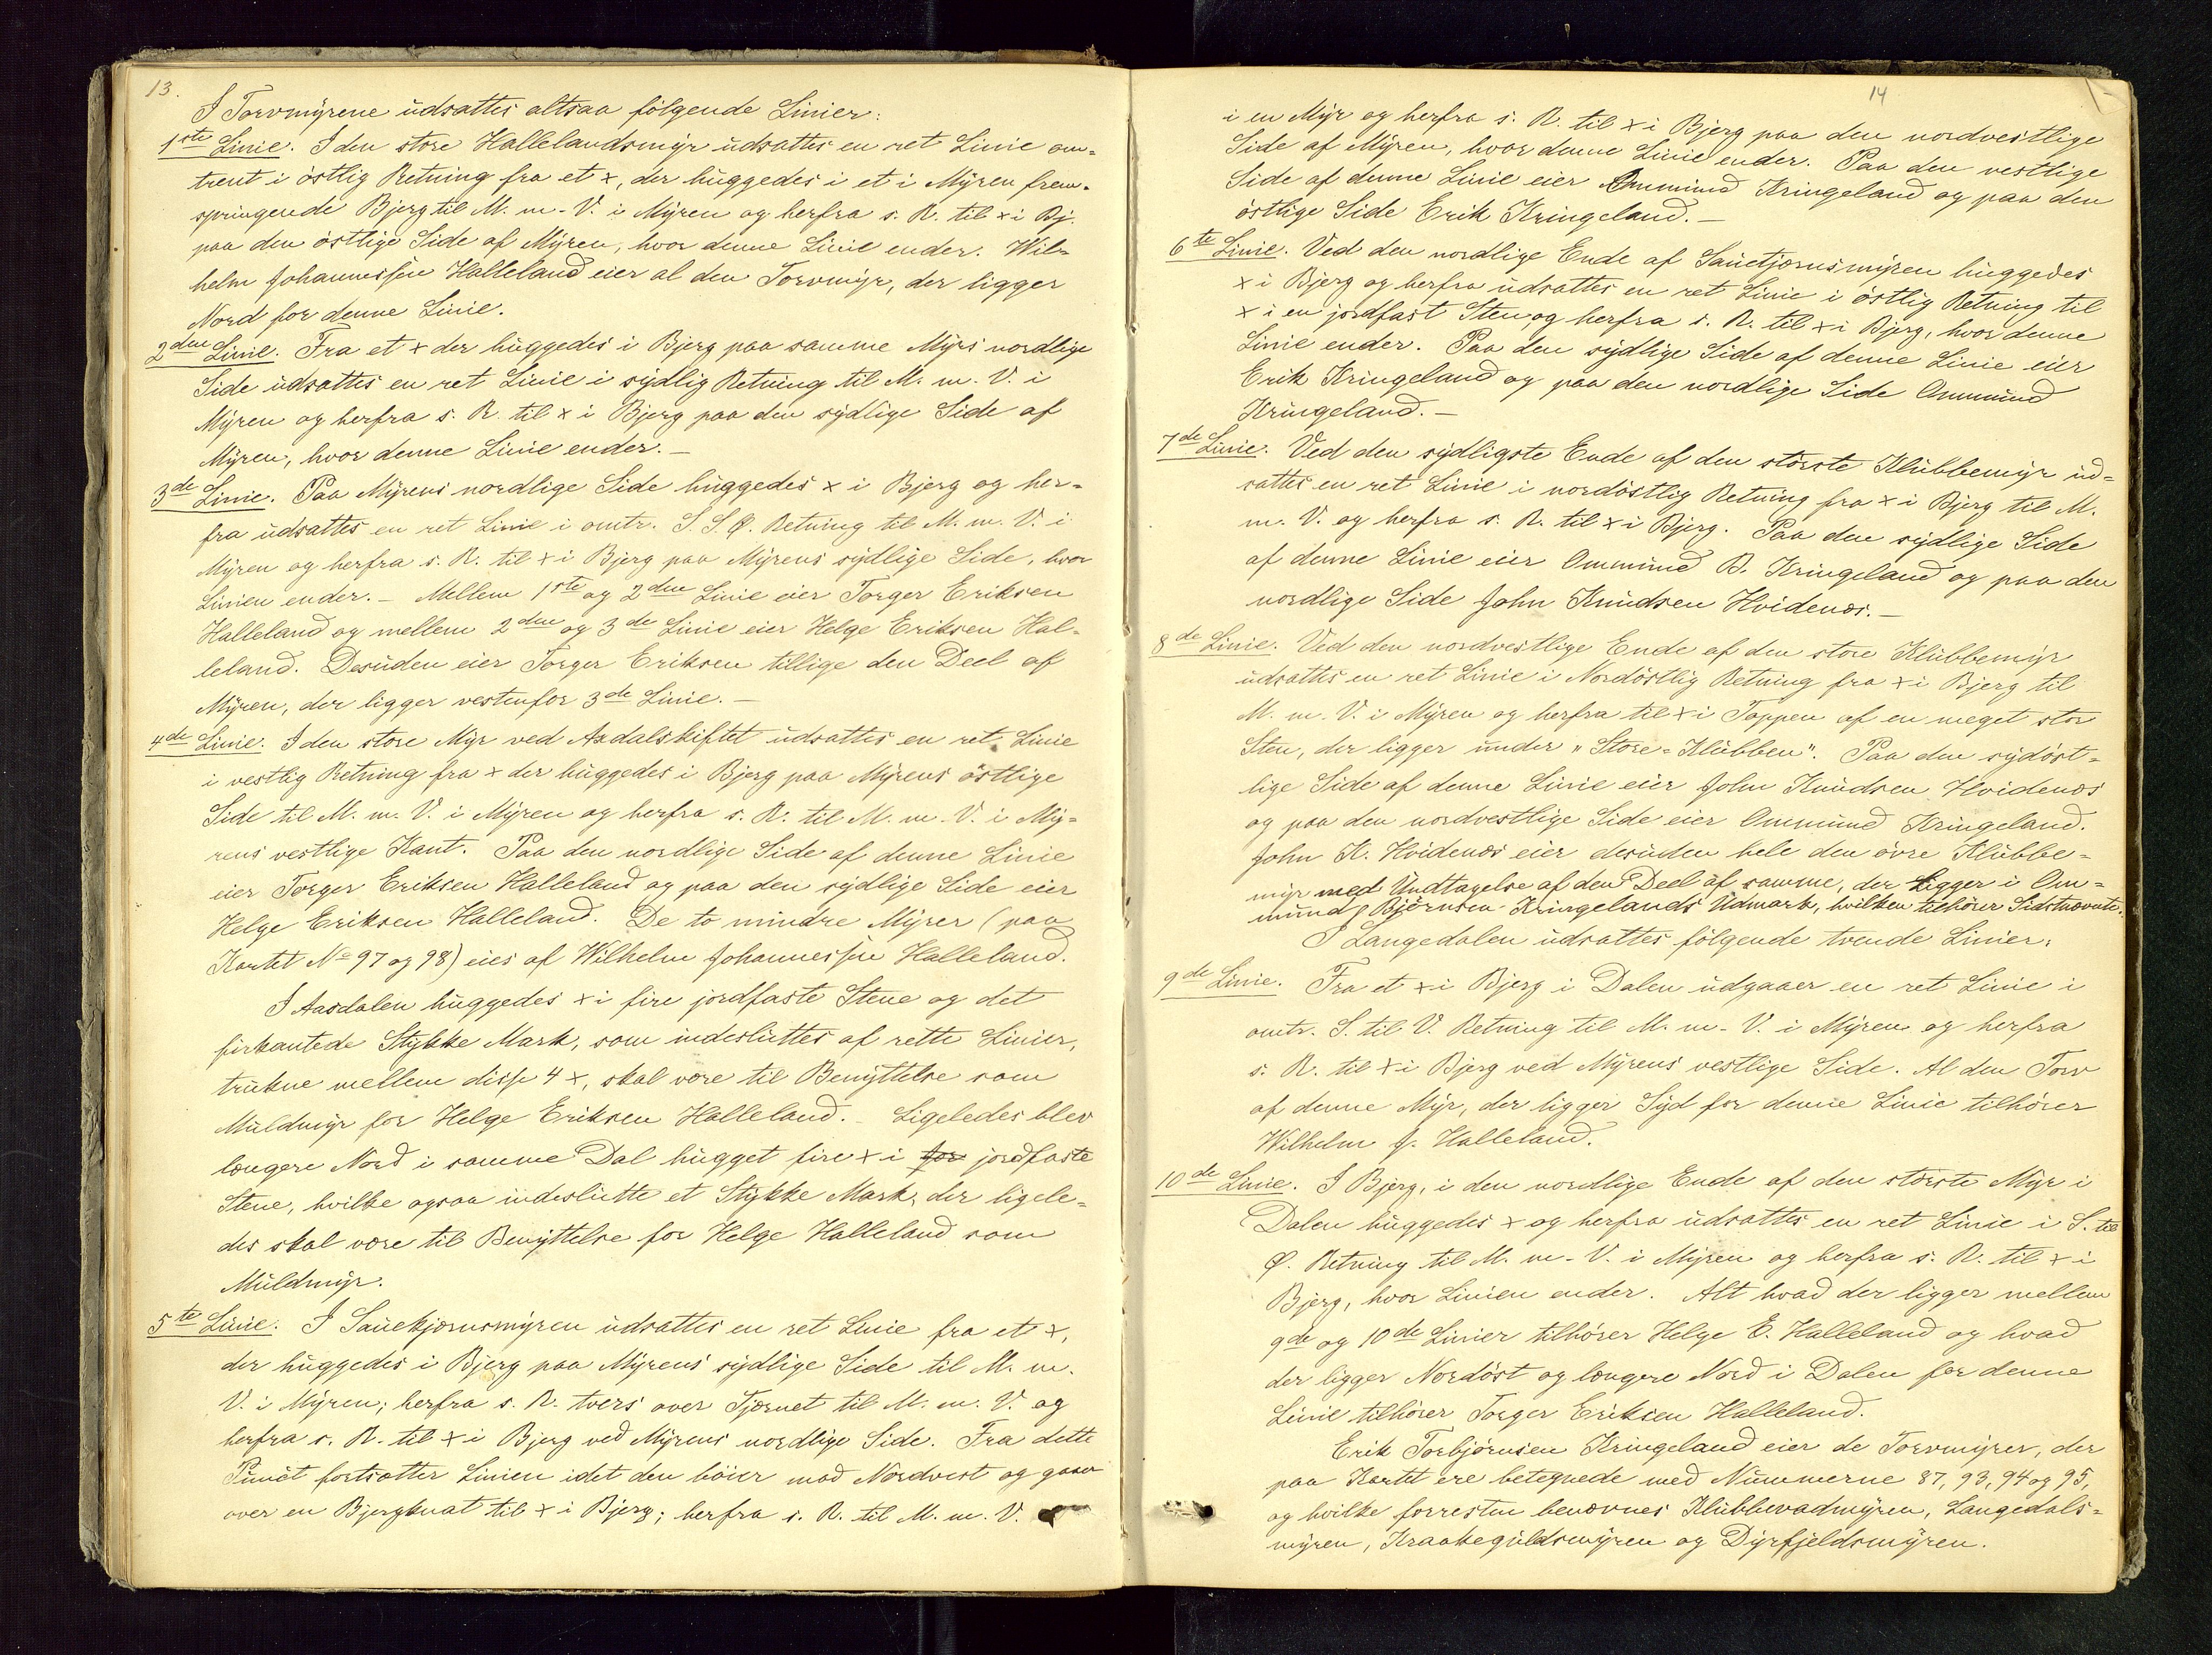 13.
I Torvmyrene udsattes altsaa følgende Linier:
1ste Linie. I den store Hallelandsmyr udsattes en ret Linie om-
trent i østlig Retning fra et x, der huggedes i et i Myren frem-
springende Bjerg til M. m. V. i Myren og herfra s. R. til x i Bj.
paa den østlige Side af Myren, hvor denne Linie ender. Wil-
helm Johannessen Halleland eier al den Torvmyr, der ligger
Nord for denne Linie.
2den Linie. Fra et x der huggedes i Bjerg paa samme Myrs nordlige
Side udsattes en ret Linie i sydlig Retning til M. m. V. i
Myren og herfra s. R. til x i Bjerg paa den sydlige Side af
Myren, hvor denne Linie ender. –
3de Linie. Paa Myrens nordlige Side huggedes x i Bjerg og her-
fra udsattes en ret Linie i omtr. S. S. Ø. Retning til M. m. V. i
Myren og herfra s. R. til x i Bjerg paa Myrens sydlige Side, hvor
Linien ender. – Mellem 1ste og 2den Linie eier Torger Eriksen
Halleland og mellem 2den og 3de Linie eier Helge Eriksen Hal-
leland. Desuden eier Torger Eriksen tillige den Deel af
Myren, der ligger vestenfor 3de Linie. –
4de Linie. I den store Myr ved Aasdalskiftet udsattes en ret Linie
i vestlig Retning fra x der huggedes i Bjerg paa Myrens østlige
Side til M. m. V. i Myren og herfra s. R. til M. m. V. i My-
rens vestlige Kant. Paa den nordlige Side af denne Linie
eier Torger Eriksen Halleland og paa den sydlige Side eier
Helge Eriksen Halleland. De to mindre Myrer (paa
Kartet No 97 og 98) eies af Wilhelm Johannessen Halleland.
I Aasdalen huggedes x i fire jordfaste Stene og det
firkantede Stykke Mark, som indesluttes af rette Linier,
trukne mellem disse 4 x, skal være til Benyttelse som
Muldmyr for Helge Eriksen Halleland. – Ligeledes blev
længere Nord i samme Dal hugget fire x i for jordfaste
Stene, hvilke ogsaa indeslutte et Stykke Mark, der ligele-
des skal være til Benyttelse for Helge Halleland som
Muldmyr.
5te Linie. I Sauetjørnsmyren udsattes en ret Linie fra et x,
der huggedes i Bjerg paa Myrens sydlige Side til M. m.
V. i Myren; herfra s. R. tvers over Tjørnet til M. m. V. og
herfra s. R. til x i Bjerg ved Myrens nordlige Side. Fra dette
Punct fortsætter Linien idet den bøier mod Nordvest og gaar
over en Bjergknat til x i Bjerg; herfra s. R. til M. m. V.
14
i en Myr og herfra s. R. til x i Bjerg paa den nordvestlige
Side af Myren, hvor denne Linie ender. Paa den vestlige
Side af denne Linie eier Ommund Kringeland og paa den
østlige Side Erik Kringeland. –
6te Linie. Ved den nordlige Ende af Sauetjørnsmyren huggedes
x i Bjerg og herfra udsattes en ret Linie i østlig Retning til
x i en jordfast Sten og herfra s. R. til x i Bjerg, hvor denne
Linie ender. Paa den sydlige Side af denne Linie eier
Erik Kringeland og paa den nordlige Side Ommund
Kringeland. –
7de Linie. Ved den sydligste Ende af den største Klubbemyr ud-
sattes en ret Linie i nordøstlig Retning fra x i Bjerg til M.
m. V. og herfra s. R. til x i Bjerg. Paa den sydlige Side
af denne Linie eier Ommund B. Kringeland og paa den
nordlige Side John Knudsen Hvidenæs. –
8de Linie. Ved den nordvestlige Ende af den store Klubbemyr
udsattes en ret Linie i Nordøstlig Retning fra x i Bjerg til
M. m. V. i Myren og herfra til x i Toppen af en meget stor
Sten, der ligger under "Store-Klubben". Paa den sydøst-
lige Side af denne Linie eier John Knudsen Hvidenæs
og paa den nordvestlige Side eier Ommund Kringeland.
John K. Hvidenæs eier desuden hele den øvre Klubbe-
myr med Undtagelse af den Deel af samme, der ligger i Om-
mund Bjørnsen Kringelands Udmark, hvilken tilhører Sidstnævnte.
I Langedalen udsattes følgende tvende Linier:
9de Linie. Fra et x i Bjerg i Dalen udgaaer en ret Linie i
omtr. S. til V. Retning til M. m. V. i Myren og herfra
s. R. til x i Bjerg ved Myrens vestlige Side. Al den Torv
af denne Myr, der ligger Syd for denne Linie tilhører
Wilhelm J. Halleland.
10de Linie. I Bjerg, i den nordlige Ende af den største Myr i
Dalen huggedes x og herfra udsattes en ret Linie i S. til
Ø. Retning til M. m. V. i Myren og herfra s. R. til x i
Bjerg, hvor Linien ender. Alt hvad der ligger mellem
9de og 10de Linier tilhører Helge E. Halleland og hvad
der ligger Nordøst og længere Nord i Dalen for denne
Linie tilhører Torger Eriksen Halleland.
Erik Torbjørnsen Kringeland eier de Torvmyrer, der
paa Kartet ere betegnede med Nummerne 87, 93, 94 og 95,
og hvilke forresten benævnes Klubbevadmyren, Langedals-
myren, Kraakeguldsmyren og Dyrfjeldsmyren.